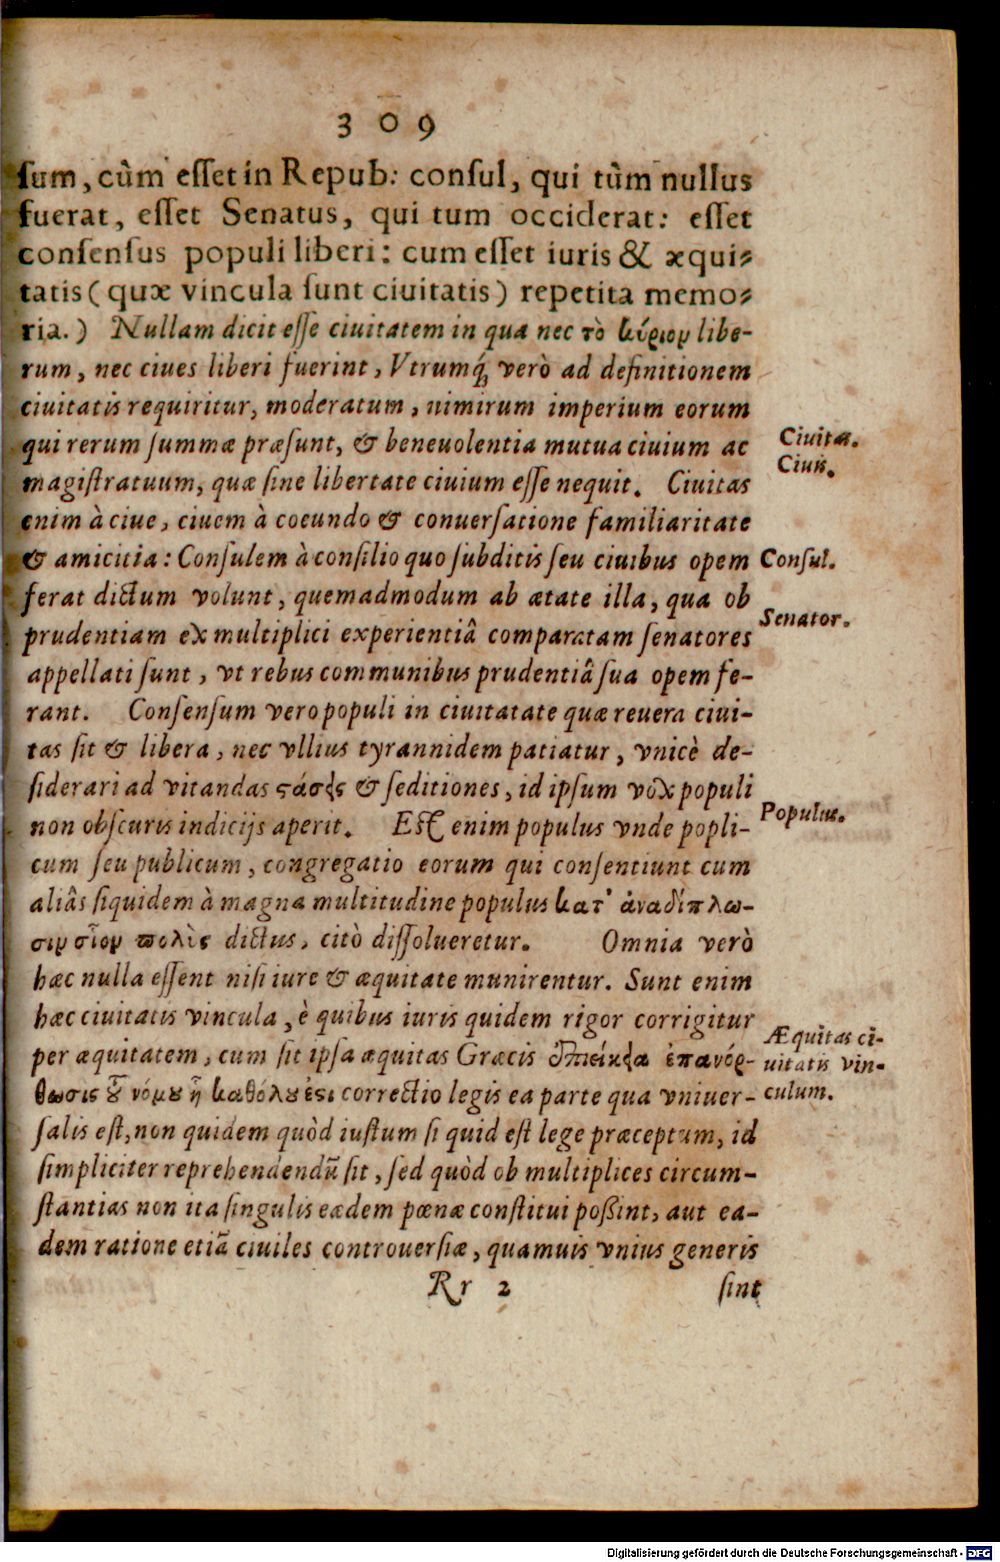 3 0 9
ſum, cùm eſſet in Repub: conſul, qui tùm nullus
fuerat, eſſet Senatus, qui tum occiderat: eſſet
conſenſus populi liberi: cum eſſet iuris & æqui⸗
tatis (quæ vincula ſunt ciuitatis) repetita memo⸗
ria.) Nullam dicit eſſe ciuitatem in qua nec τὸ κύριον libe-
rum, nec ciues liberi fuerint, Vtrumq́; verò ad definitionem
ciuitatis requiritur, moderatum, nimirum imperium eorum
qui rerum ſummæ præſunt, & beneuolentia mutua ciuium ac
magiſtratuum, quæ ſine libertate ciuium eſſe nequit. Ciuitas
enim à ciue, ciuem à coeundo & conuerſatione familiaritate
& amicitia: Conſulem à conſilio quo ſubditis ſeu ciuibus opem
ferat dictum volunt, quemadmodum ab ætate illa, qua ob
prudentiam ex multiplici experientiâ comparatam ſenatores
appellati ſunt, vt rebus communibus prudentiâ ſua opem fe-
rant. Conſenſum vero populi in ciuitatate quæ reuera ciui-
tas ſit & libera, nec vllius tyrannidem patiatur, vnicè de-
ſiderari ad vitandas ϛάσεις & ſeditiones, id ipſum vox populi
non obſcuris indicijs aperit. Eſt enim populus vnde popli-
cum ſeu publicum, congregatio eorum qui conſentiunt cum
aliâs ſiquidem à magna multitudine populus κατ' ἀναδίπλω-
σιν οἷον πολὺς dictus, citò diſſolueretur. Omnia verò
hæc nulla eſſent niſi iure & æquitate munirentur. Sunt enim
hæc ciuitatis vincula, è quibus iuris quidem rigor corrigitur
per æquitatem, cum ſit ipſa æquitas Græcis ἐπιείκεια ἐπανόρ-
θωσις τοῦ νόμου ᾗ καθόλου ἐϛι correctio legis ea parte qua vniuer-
ſalis eſt, non quidem quòd iuſtum ſi quid eſt lege præceptum, id
ſimpliciter reprehendendũ ſit, ſed quòd ob multiplices circum-
ſtantias non ita ſingulis eædem pœnæ conſtitui poßint, aut ea-
dem ratione etiã ciuiles controuerſiæ, quamuis vnius generis
Rr 2 ſint
Ciuitas.
Ciuis.
Conſul.
Senator.
Populus.
Æquitas ci-
uitatis vin-
culum.
Digitalisierung gefördert durch die Deutsche Forschungsgemeinschaft - DFG